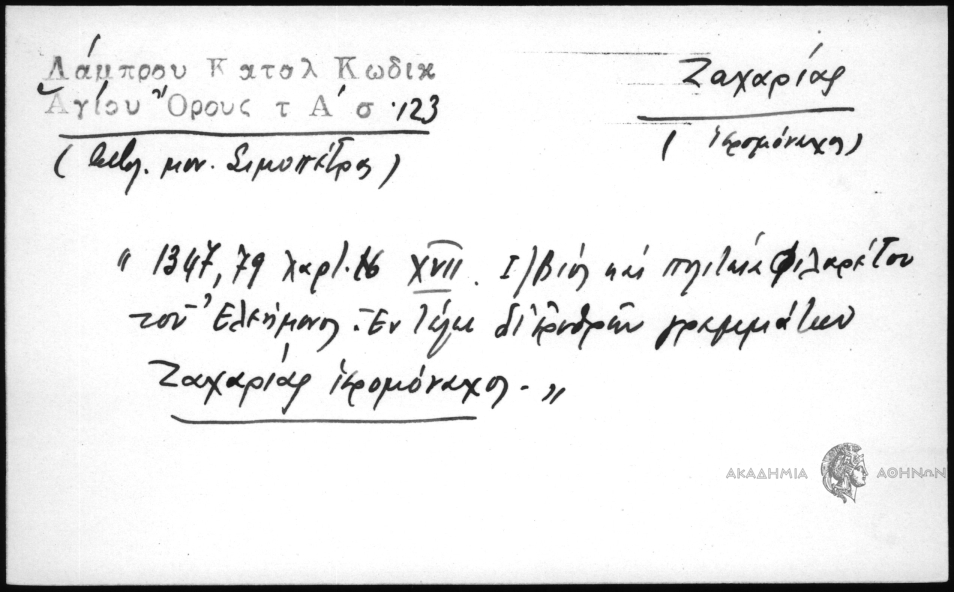 Λάμπρου Καταλ Κωδικ
Ἁγίου Ὄρους τ Α΄ σ. 123
( μον. Σιμοπέτρας)
Ζαχαρίας
(ἱερομόναχος)
" 1347, 79 χαρτ. 16 XVII. 1/ Βίος καὶ πολιτεία Φιλαρέτου
τοῦ Ἐλεήμονος. - Ἐν τέλει δι' ἐρυθρῶν γραμμάτων
Ζαχαρίας ἱερομόναχος. - "
ΑΚΑΔΗΜΙΑ ΑΘΗΝΩΝ